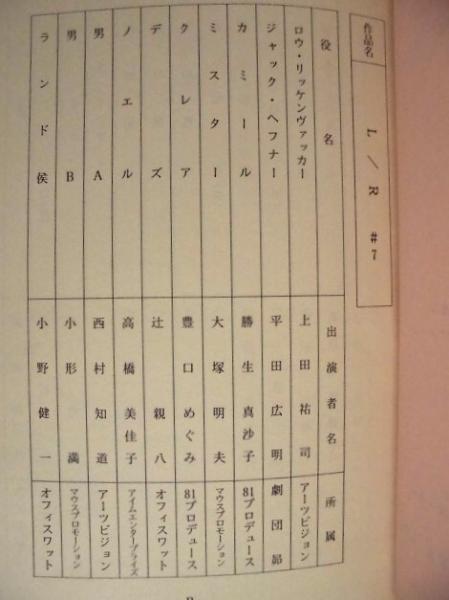 作品名 L/R #7
役名 出演者名 所属
ロウ・リッケンヴァッカー 上田祐司 アーツビジョン
ジャック・ヘフナー 平田広明 劇団昴
カミール 勝生真沙子 81プロデュース
ミスター 大塚明夫 マウスプロモーション
クレア 豊口めぐみ 81プロデュース
デズ 辻親八 オフィスワット
ノエル 高橋美佳子 アイムエンタープライズ
男A 西村知道 アーツビジョン
男B 小形満 マウスプロモーション
ランド侯 小野健一 オフィスワット